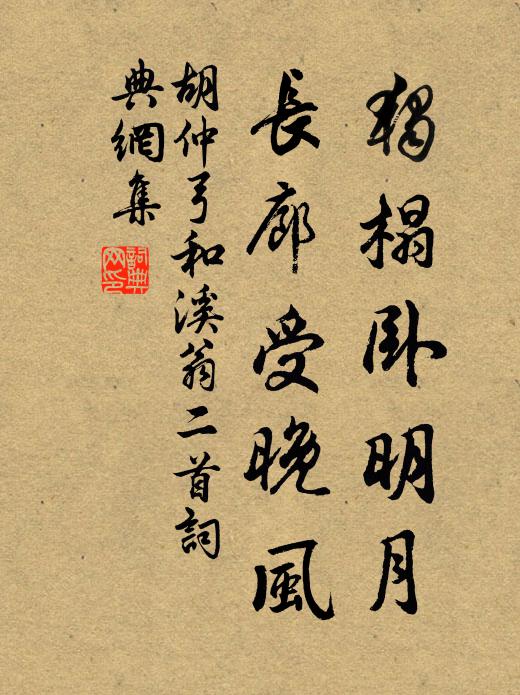 獨榻卧明月
長廊受晚風
胡仲弓和溪翁二首詞
典網集
詞典網印